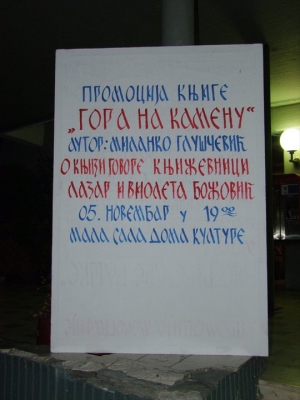 ПРОМОЦИЈА КЊИГЕ
„ГОРА НА КАМЕНУ“
АУТОР: МИЛАНКО ГЛУШЧЕВИЋ
О КЊИЗИ ГОВОРЕ КЊИЖЕВНИЦИ
ЛАЗАР И ВИОЛЕТА БОЖОВИЋ
05. НОВЕМБАР У 19 00
МАЛА САЛА ДОМА КУЛТУРЕ